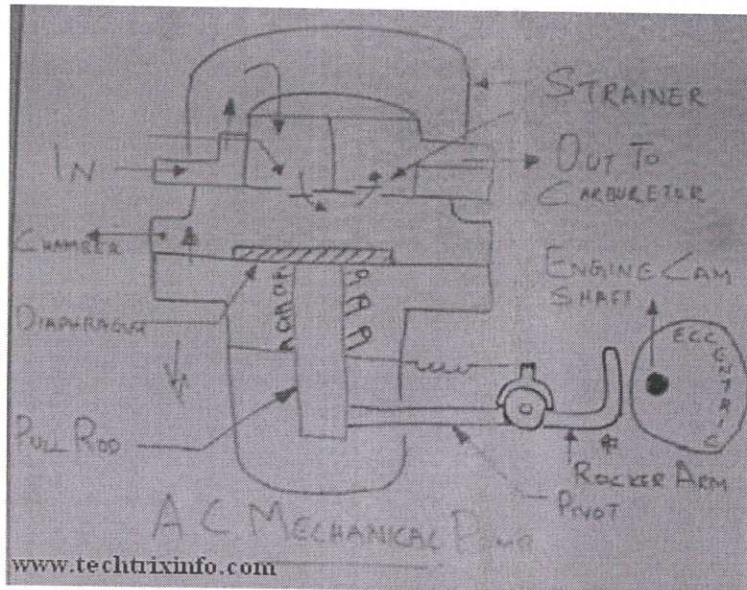 STRAINER
IN
OUT TO
CARBURETOR
CHAMBER
ENGINE CAM
SHAFT
ECCENTRIC
DIAPHRAGM
PULL ROD
ROCKER ARM
PIVOT
A.C. MECHANICAL PUMP
www.techtrixinfo.com